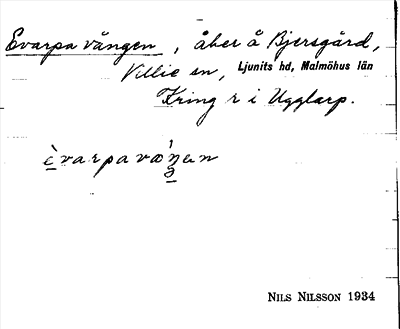 Evarpavången, åker å Bjersgård,
Villie sn, Ljunits hd, Malmöhus län
Kring r i Ugglarp.
NILS NILSSON 1934